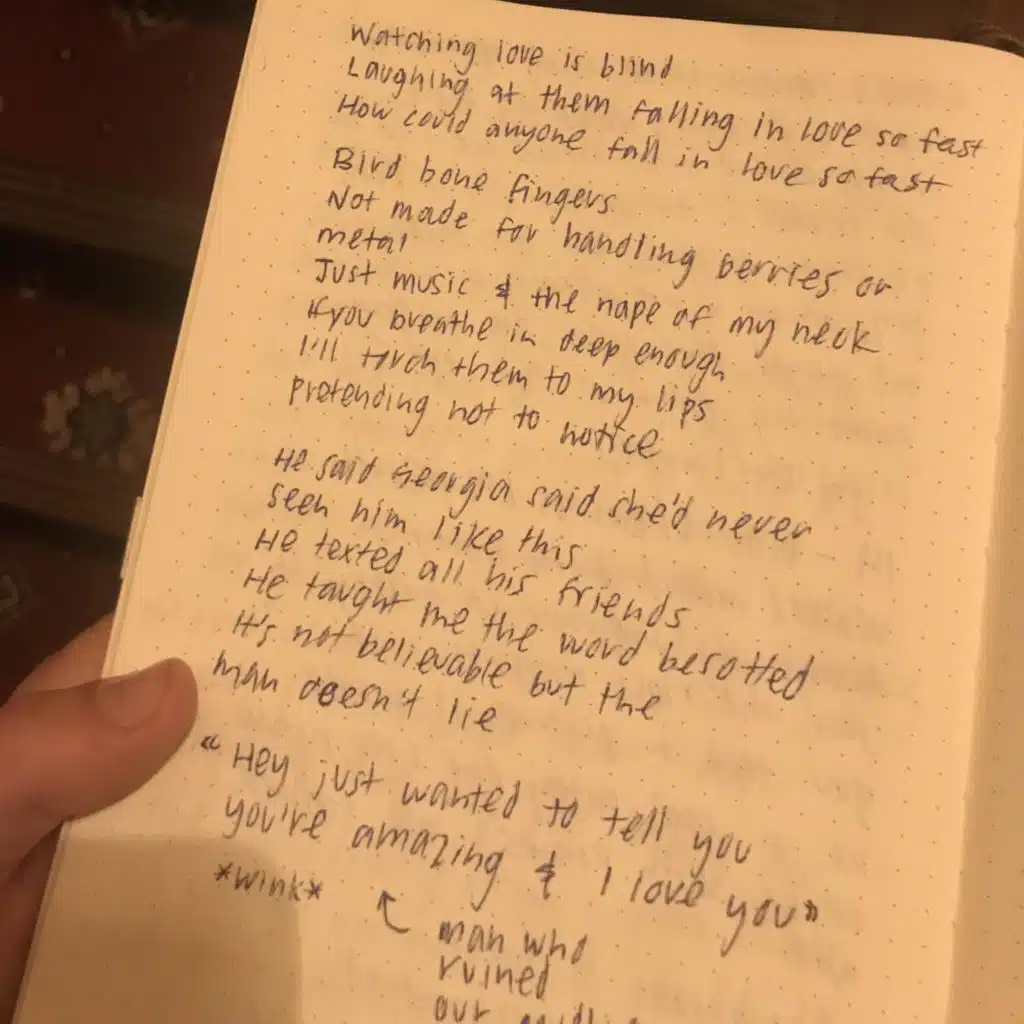 Watching love is blind
Laughing at them falling in love so fast
How could anyone fall in love so fast
Bird bone fingers
Not made for handling berries or
metal
Just music & the nape of my neck
If you breathe in deep enough
I'll torch them to my lips
pretending not to notice
He said Georgia said she'd never
seen him like this
He texted all his friends
He taught me the word besotted
It's not believable but the
man doesn't lie
"Hey just wanted to tell you
you're amazing & I love you"
*wink*
man who
ruined
our